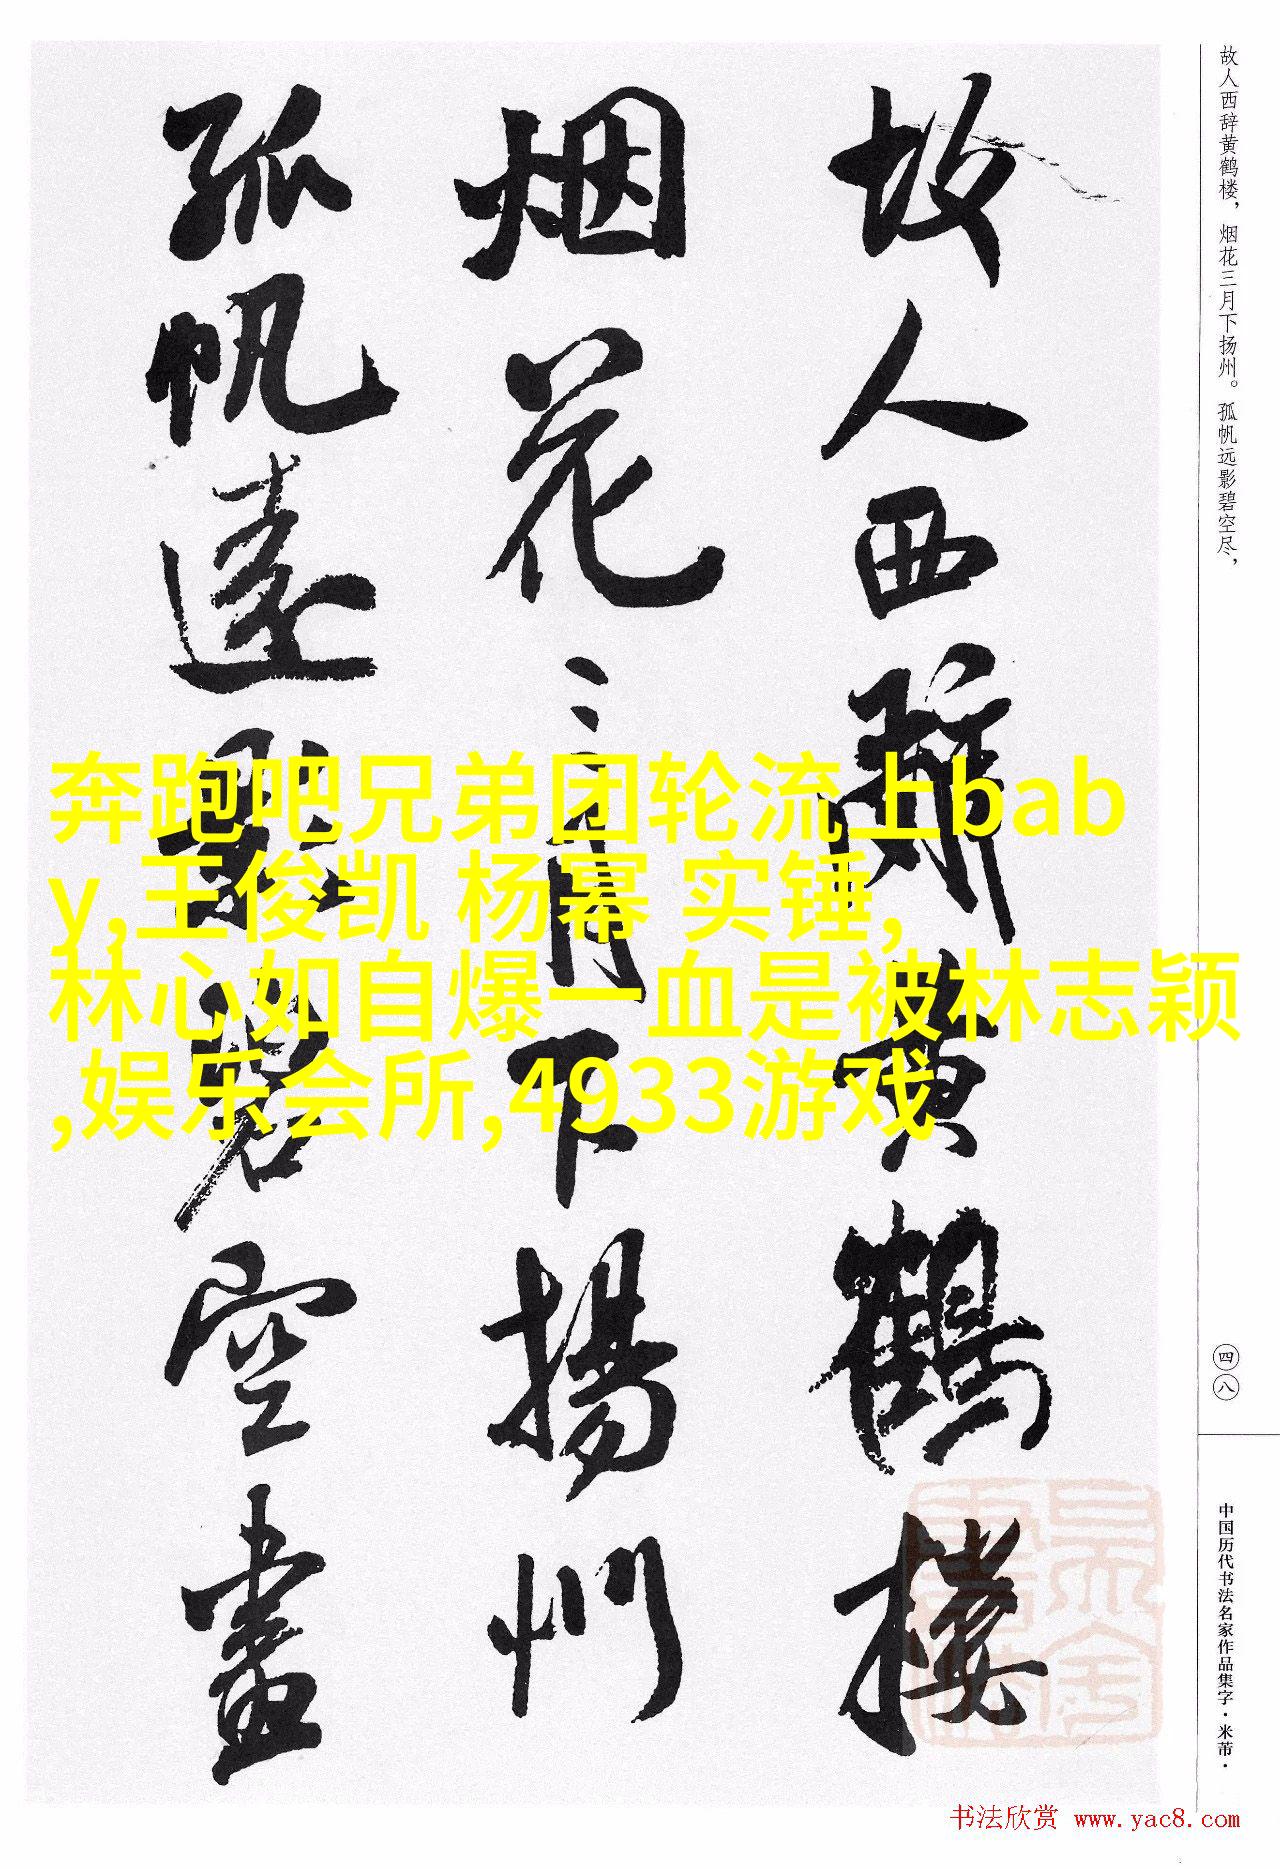 故人西辞黄鹤楼，烟花三月下扬州。孤帆远影碧空尽，
故人西辭黄鶴樓
烟花三月下揚州
孤帆遠影碧空盡
奔跑吧兄弟团轮流上bab
y,王俊凯 杨幂 实锤,
林心如自爆一血是被林志颖
,娱乐会所,4933游戏
四八
中国历代书法名家作品集字·米芾·
书法欣赏 www.yac8.com